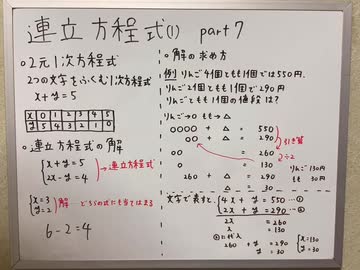 連立方程式(1) part 7
○2元1次方程式
2つの文字をふくむ1次方程式
x+y=5
x 0 1 2 3 4 5
y 5 4 3 2 1 0
○連立方程式の解
{x+y=5
2x-y=4} →連立方程式
{x=3
y=2} 解 どちらの式にも当てはまる
6-2=4
○解の求め方
例 りんご4個ともも1個では550円.
りんご2個ともも1個で290円
りんごともも1個の値段は?
りんご→○ もも→△
○○○○ + △ = 550
○○ + △ = 290
引き算
○○ = 260
÷2
○ = 130
りんご130円
260 + △ = 290
もも 30円
△ = 30
文字で表すと、{4x + y = 550 …①
2x + y = 290 …②
2x = 260
x = 130
②に代入
260 + y = 290
y = 30
{x=130
y=30